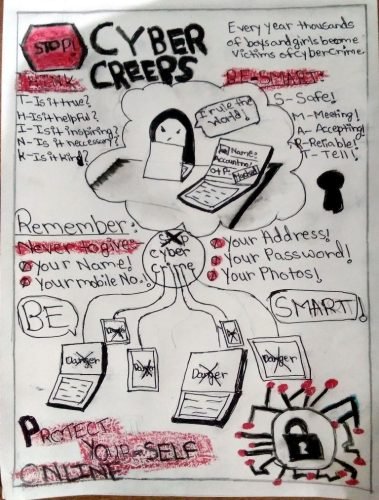 STOP!
CYBER
CREEPS
Every year thousands
of boys and girls become
victims of cyber crime.
THINK
T-Is it true?
H-Is it helpful?
I-Is it inspiring?
N-Is it neccesary?
K-Is it kind?
BE-SMART
S-Safe!
M-Meeting!
A-Accepting!
R-Reliable!
T-Tell!
I rule the
World!
Name:
Account no:
OTP:
Hacked
Remember:
Never to give
Your Name!
Your mobile No.!
Your Address!
Your Password!
Your Photos!
Stop
Cyber
Crime
BE
SMART!
Danger
Danger
Danger
Danger
Danger
PROTECT
YOUR-SELF
ONLINE